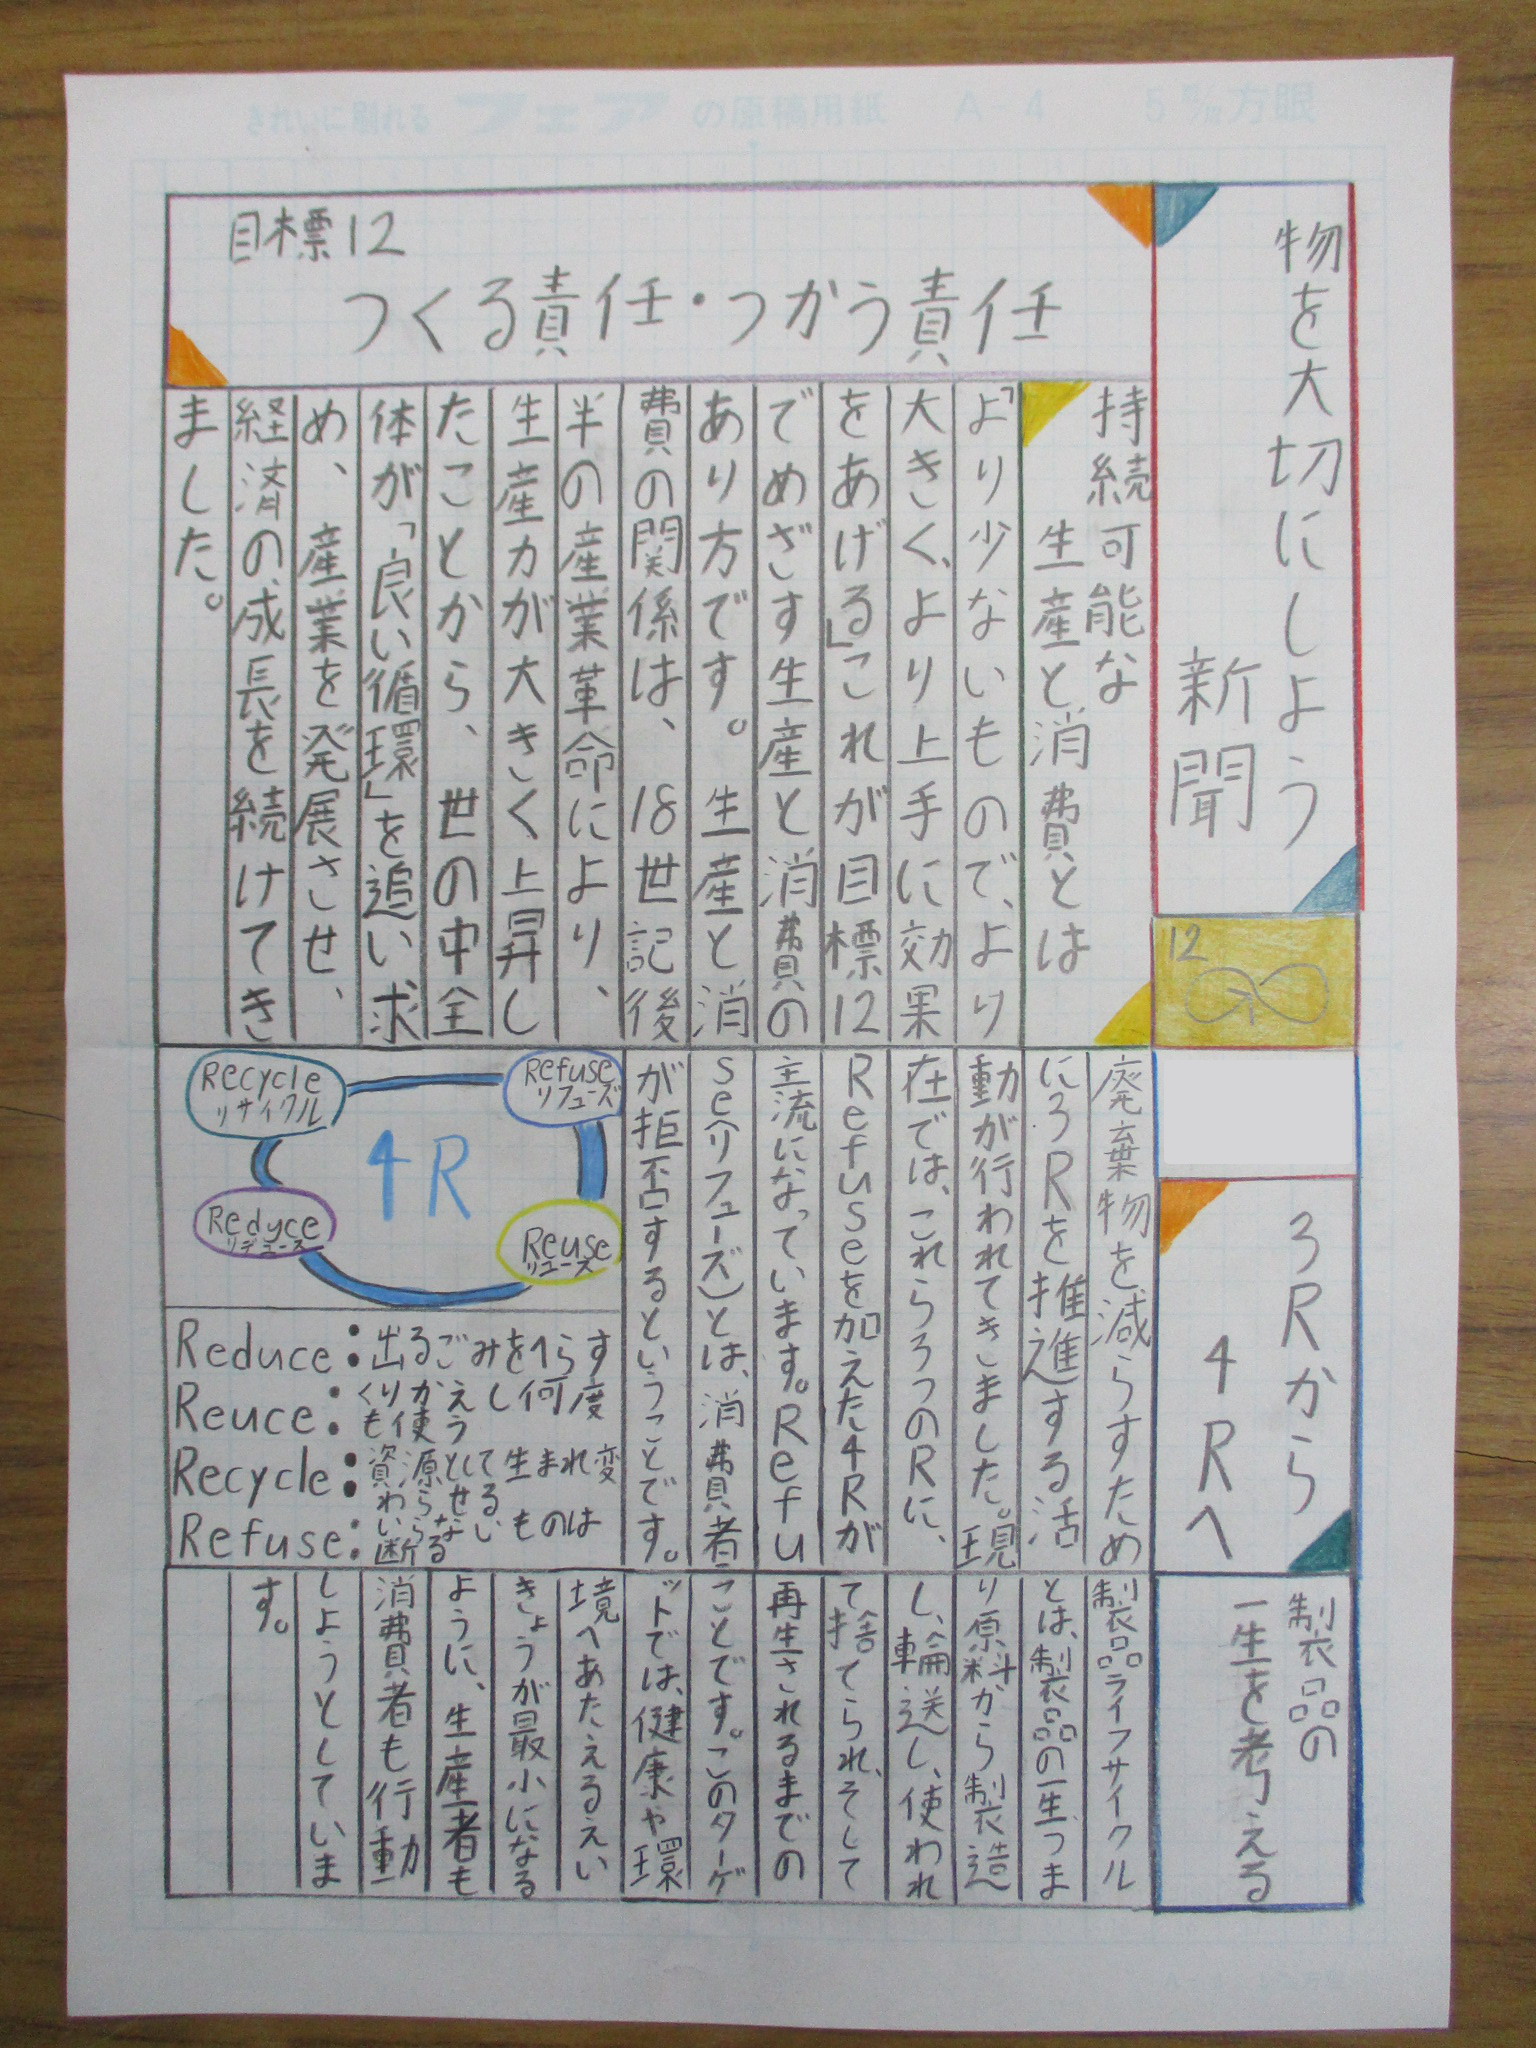 きれいに刷れる フェア の原稿用紙 A-4 5㍉方眼
物を大切にしよう
新聞
12
目標12
つくる責任・つかう責任
持続可能な
生産と消費とは
「より少ないもので、より
大きく、より上手に効果
をあげる」これが目標12
でめざす生産と消費の
あり方です。生産と消
費の関係は、18世記後
半の産業革命により、
生産力が大きく上昇し
たことから、世の中全
体が「良い循環」を追い求
め、産業を発展させ、
経済の成長を続けてき
ました。
3Rから
4Rへ
廃棄物を減らすため
に3Rを推進する活
動が行われてきました。現
在では、これら3つのRに、
Refuseを加えた4Rが
主流になっています。Refu
se(リフューズ)とは、消費者
が拒否するということです。
Recycle
リサイクル
Refuse
リフューズ
4R
Redyce
リデュース
Reuse
リユース
Reduce:出るごみをへらす
Reuce:くりかえし何度
も使う
Recycle:資源として生まれ変
わらせる
Refuse:いらないものは
断る
製品の
一生を考える
製品ライフサイクル
とは、製品の一生つま
り原料から製造
し、輸送し、使われ
て捨てられ、そして
再生されるまでの
ことです。このターゲ
ットでは、健康や環
境へあたえるえい
きょうが最小になる
ように、生産者も
消費者も行動
しようとしていま
す。